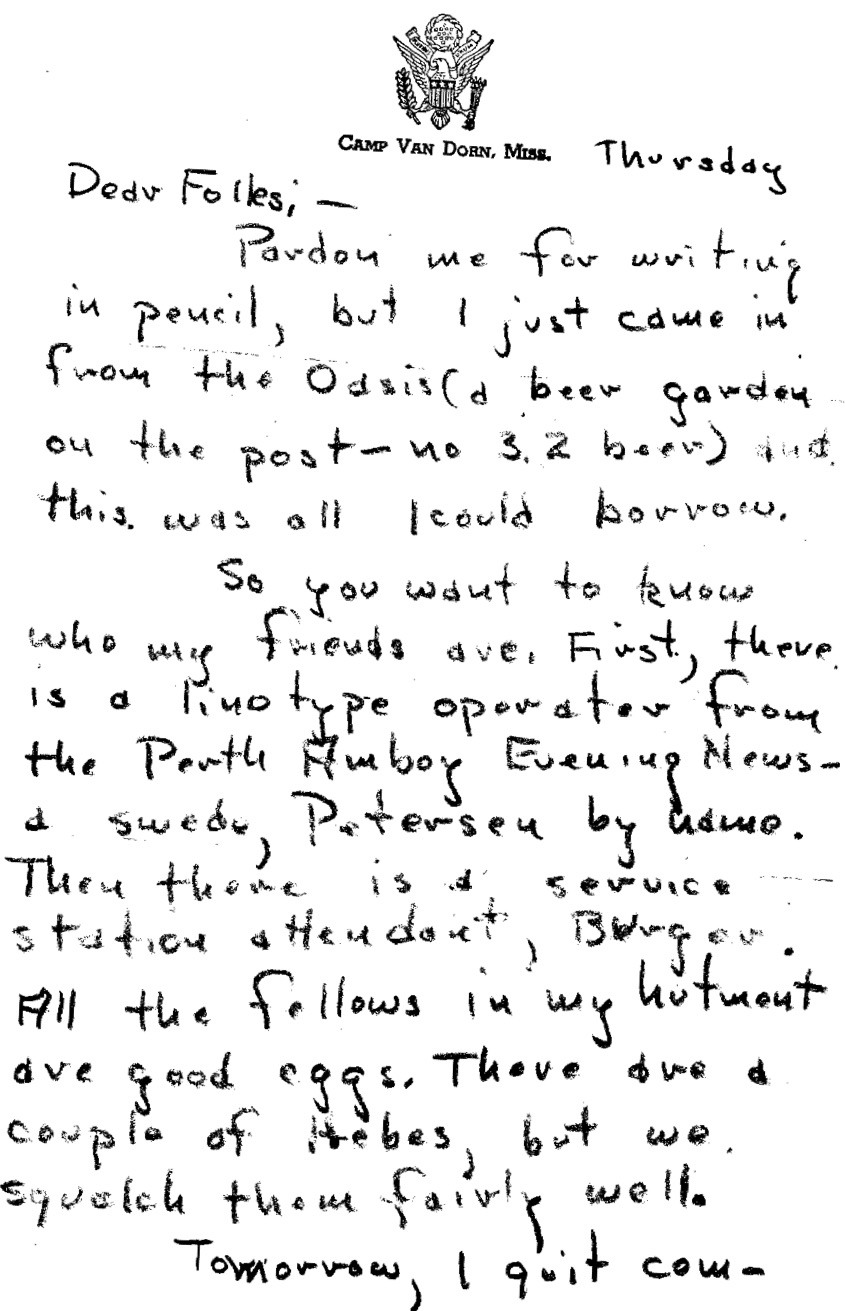 CAMP VAN DORN, MISS. Thursday
Dear Folks; —
Pardon me for writing
in pencil, but I just came in
from the Oasis (a beer garden
on the post — no 3.2 beer) and
this was all I could borrow.
So you want to know
who my friends are. First, there
is a linotype operator from
the Perth Amboy Evening News -
a swede, Petersen by name.
Then there is a service
station attendant, Burger.
All the fellows in my hutment
are good eggs. There are a
couple of Hebes, but we
squelch them fairly well.
Tomorrow, I quit com-